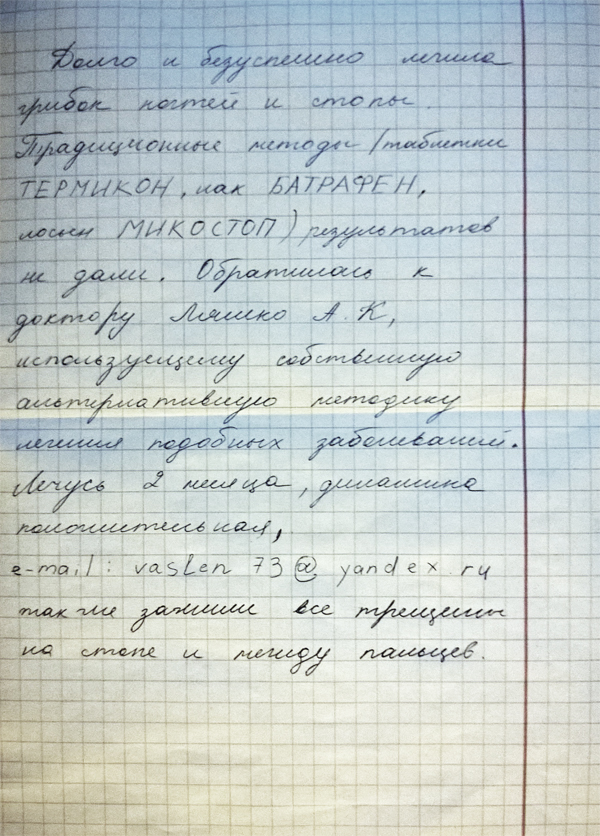 Долго и безуспешно лечила
грибок ногтей и стопы.
Традиционные методы (таблетки
ТЕРМИКОН, лак БАТРАФЕН,
лосьен МИКОСТОП) результатов
не дали. Обратилась к
доктору Ляшко А.К,
использующему собственную
альтернативную методику
лечения подобных заболеваний.
Лечусь 2 месяца, динамика
положительная,
e-mail: vaslen 73@ yandex.ru
так же зажили все трещины
на стопе и между пальцев.